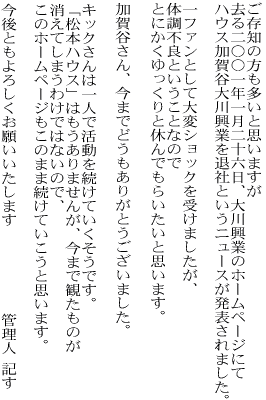 ご存知の方も多いと思いますが
去る二〇〇一年一月二十六日、大川興業のホームページにて
ハウス加賀谷大川興業を退社というニュースが発表されました。
一ファンとして大変ショックを受けましたが、
体調不良ということなので
とにかくゆっくりと休んでもらいたいと思います。
加賀谷さん、今までどうもありがとうございました。
キックさんは一人で活動を続けていくそうです。
「松本ハウス」はもうありませんが、今まで観たものが
消えてしまうわけではないので、
このホームページもこのまま続けていこうと思います。
今後ともよろしくお願いいたします　　　　管理人 記す